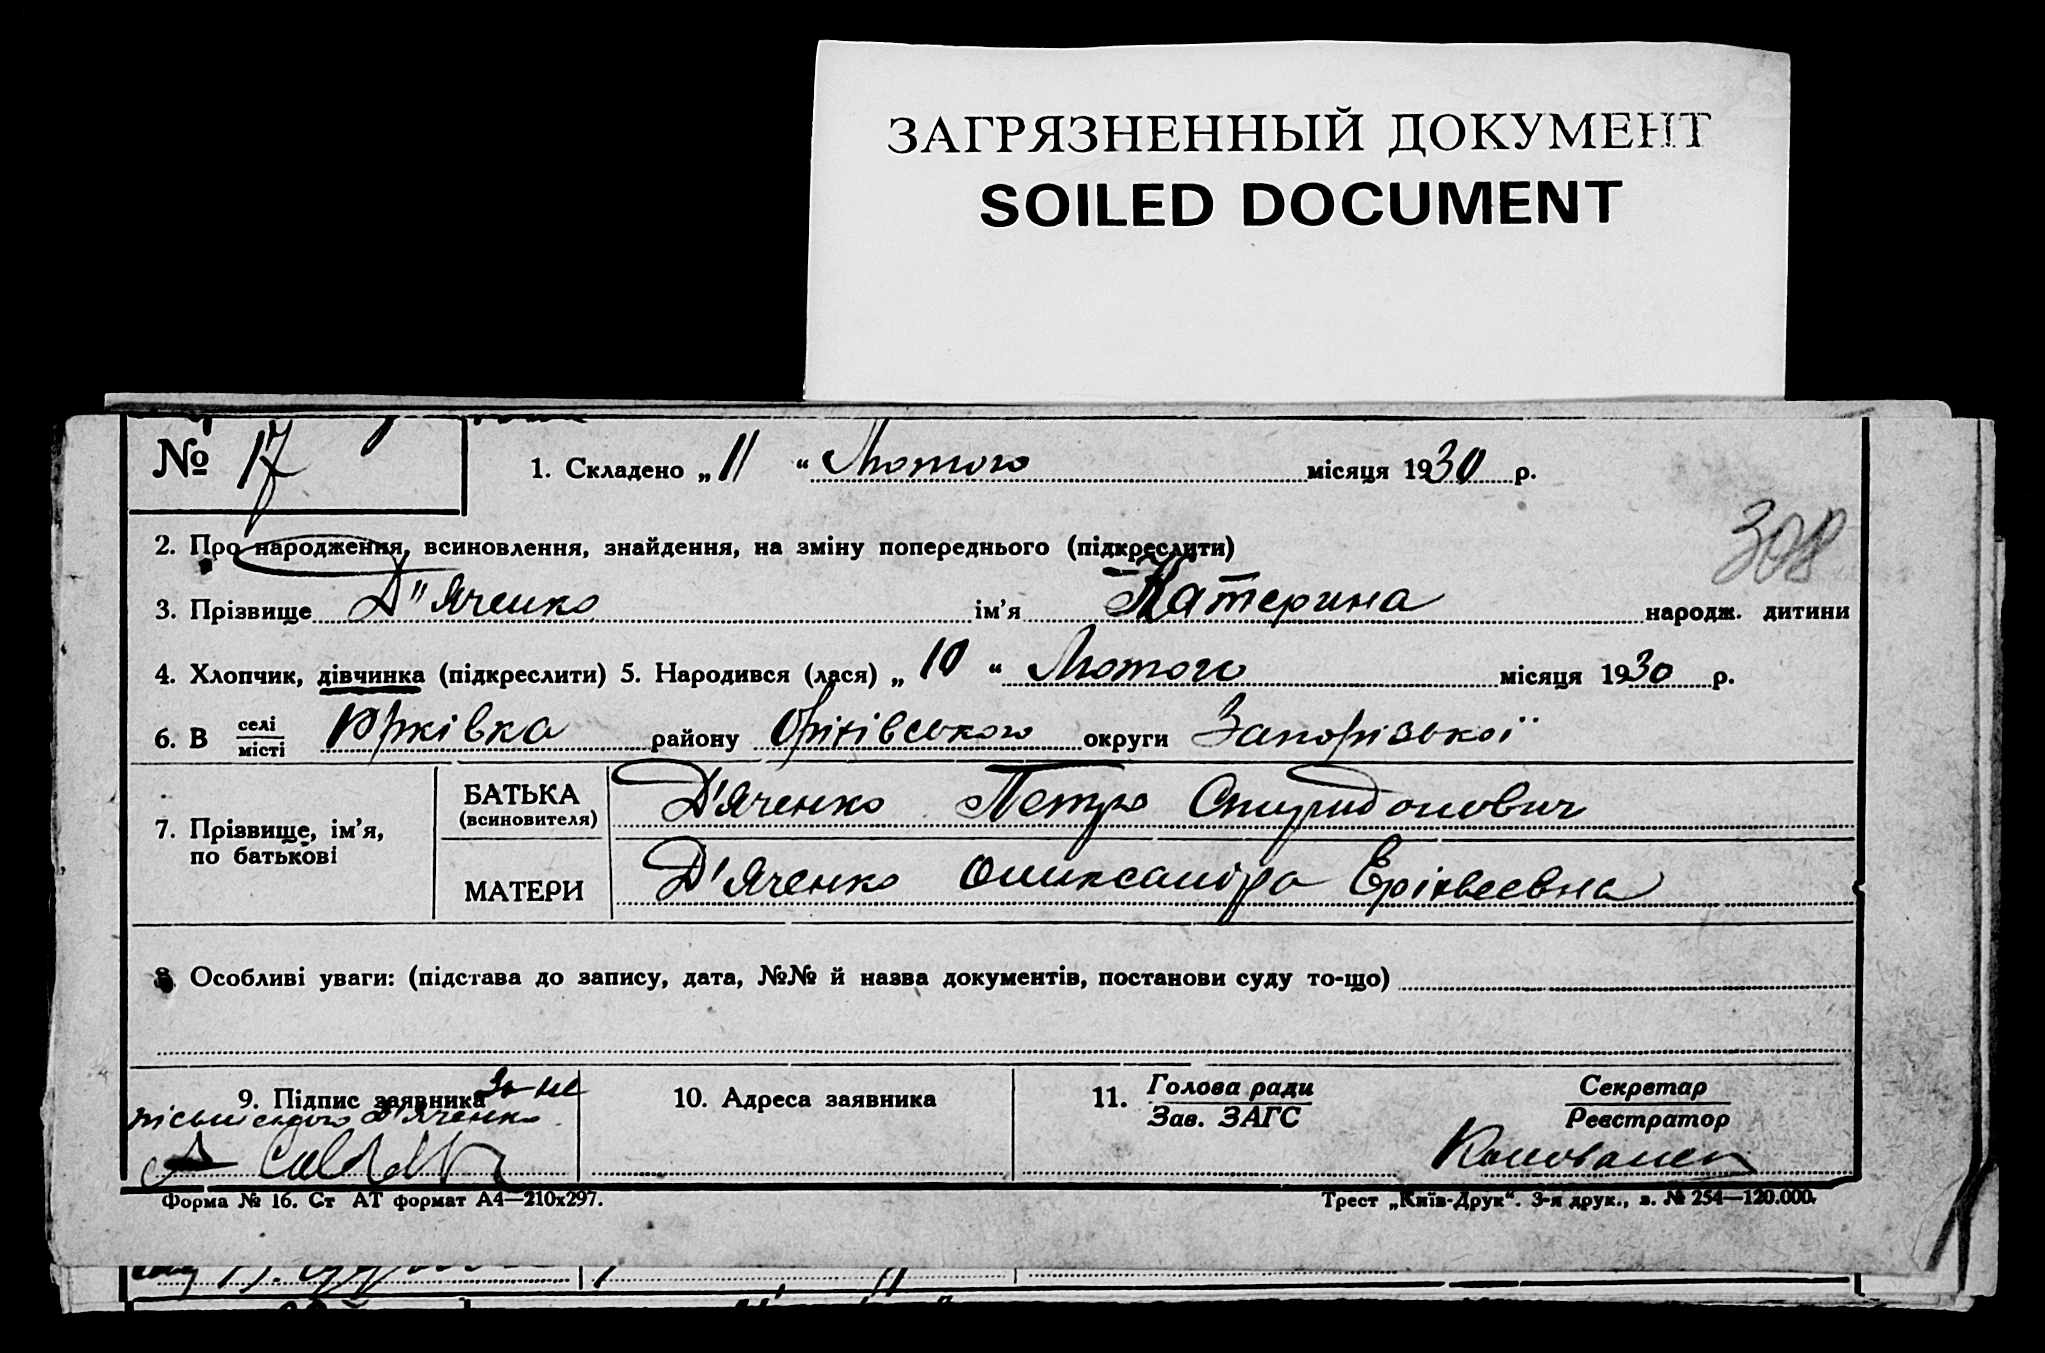 ЗАГРЯЗНЕННЫЙ ДОКУМЕНТ
SOILED DOCUMENT
№ 17
1. Складено „ 11 “ Лютого місяця 1930 р.
308
2. Про народження, всиновлення, знайдення, на зміну попереднього (підкреслити)
3. Прізвище Д"яченко ім’я Катерина народж. дитини
4. Хлопчик, дівчинка (підкреслити) 5. Народився (лася) „ 10 “ Лютого місяця 1930 р.
6. В селі місті Юрківка району Оріхівського округи Запорізької
7. Прізвище, ім’я, по батькові
БАТЬКА (всиновителя) Д'яченко Петро Спиридонович
МАТЕРИ Д'яченко Олександра
8. Особливі уваги: (підстава до запису, дата, №№ й назва документів, постанови суду то-що)
9. Підпис заявника За не
письменного Д'яченко
10. Адреса заявника
11. Голова ради Зав. ЗАГС
Секретар Реєстратор
Форма № 16. Ст АТ формат А4—210х297.
Трест „Київ-Друк“. 3-я друк., в. № 254—120.000.